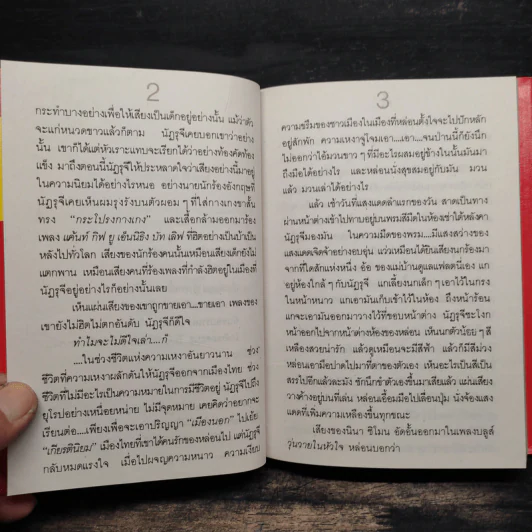 2
กระทำบางอย่างเพื่อให้เสียงเป็นเด็กอยู่อย่างนั้น แม้ว่าตัว
จะแก่หนวดขาวแล้วก็ตาม นัฏรุจีเคยบอกเขาว่าอย่าง
นั้น เขาก็ได้แต่หัวเราะแทบจะเรียกได้ว่าอย่างท้องคัดท้อง
แข็ง มาถึงตอนนี้นัฏรุจีให้ประหลาดใจว่าเสียงอย่างนี้มาอยู่
ในความนิยมได้อย่างไรหนอ อย่างนายนักร้องอังกฤษที่
นัฏรุจีเคยเห็นผมรุงรังบนตัวผอม ๆ ที่ใส่กางเกงขาสั้น
ทรง “กระโปรงกางเกง” และเสื้อกล้ามออกมาร้อง
เพลง แค้นท์ กิฟ ยู เอ็นนิธิง บัท เลิฟ ที่ฮิตอย่างเป็นบ้าเป็น
หลังไปทั่วโลก เสียงของนักร้องคนนั้นเหมือนเสียงเด็กยังไม่
แตกพาน เหมือนเสียงคนที่ร้องเพลงที่กำลังฮิตอยู่ในเมืองที่
นัฏรุจีอยู่อย่างไรก็อย่างนั้นเลย
เห็นแผ่นเสียงของเขาถูกขายเอา...ขายเอา เพลงของ
เขายังไม่ฮิตไม่ตกอันดับ นัฏรุจีก็ดีใจ
ทำไมจะไม่ดีใจเล่า....ก็
....ในช่วงชีวิตแห่งความเหงาอันยาวนาน ช่วง
ชีวิตที่ความเหงาผลักดันให้นัฏรุจีออกจากเมืองไทย ช่วง
ชีวิตที่ไม่มีอะไรเป็นความหมายในการมีชีวิตอยู่ นัฏรุจีไปถึง
ยุโรปอย่างเหนื่อยหน่าย ไม่มีจุดหมาย เคยคิดว่าอยากจะ
เรียนต่อ....เพียงเพื่อจะเอาปริญญา “เมืองนอก” ไปเย้ย
“เกียรตินิยม” เมืองไทยที่เขาได้คนรักของหล่อนไป แต่นัฏรุจี
กลับหมดแรงใจ เมื่อไปผจญความหนาว ความเงียบ
3
ความขรึมของชาวเมืองในเมืองที่หล่อนตั้งใจจะไปปักหลัก
อยู่สักพัก ความเหงาจู่โจมเอา....เอา....จนป่านนี้ก็ยังนึก
ไม่ออกว่าไอ้มวนขาว ๆ ที่มีอะไรผสมอยู่ข้างในนั้นมันมา
ถึงมือได้อย่างไร และหล่อนนั่งสูบมันอยู่กับมัน มวน
แล้ว มวนเล่าได้อย่างไร
แล้ว เช้าวันที่แสงแดดลำแรกของวัน สาดเป็นทาง
ผ่านหน้าต่างเข้าไปทาบอยู่บนพรมสีมืดในห้องเช่าใต้หลังคา
นัฏรุจีมองมัน ในความมืดของพรม....มีแสงสว่างของ
แสงแดดเจิดจ้าอย่างอบอุ่น แว่วเหมือนได้ยินเสียงนกร้องมา
จากที่ใดสักแห่งหนึ่ง อ้อ ของแม่บ้านดูแลแฟลตนี่เอง แก
อยู่ห้องใกล้ ๆ กับนัฏรุจี แกเลี้ยงนกเล็ก ๆ เอาไว้ในกรง
ในหน้าหนาว แกเอามันเก็บเข้าไว้ในห้อง ถึงหน้าร้อน
แกจะเอามันออกมาวางไว้ที่ขอบหน้าต่าง นัฏรุจีชะโงก
หน้าออกไปจากหน้าต่างห้องของหล่อน เห็นนกตัวน้อย ๆ สี
เหลืองสวยน่ารัก แล้วดูเหมือนจะมีสีฟ้า แล้วก็มีสีม่วง
หล่อนเอามือป่ายไปมาที่ตาของตัวเอง เห็นอะไรเป็นสีเป็น
สรรไปอีกแล้วละมัง ชักนึกขำตัวเองขึ้นมาเสียแล้ว แผ่นเสียง
วางค้างอยู่บนที่เล่น หล่อนเอื้อมมือไปเลื่อนปุ่ม นั่งจ้องแสง
แดดที่เพิ่มความเหลืองขึ้นทุกขณะ
เสียงของนินา ซิโมน อัดอั้นออกมาในเพลงบลูส์
วุ่นวายในหัวใจ หล่อนบอกว่า